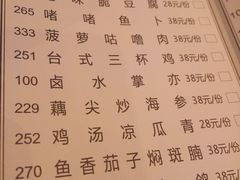 脆豆腐 28元/份
265 啫啫鱼卜 38元/份
333 菠萝咕噜肉 38元/份
251 台式三杯鸡 38元/份
100 卤水掌亦 38元/份
229 藕尖炒海参 38元/份
252 鸡汤凉瓜青 28元/份
270 鱼香茄子焖斑腩 38元/份